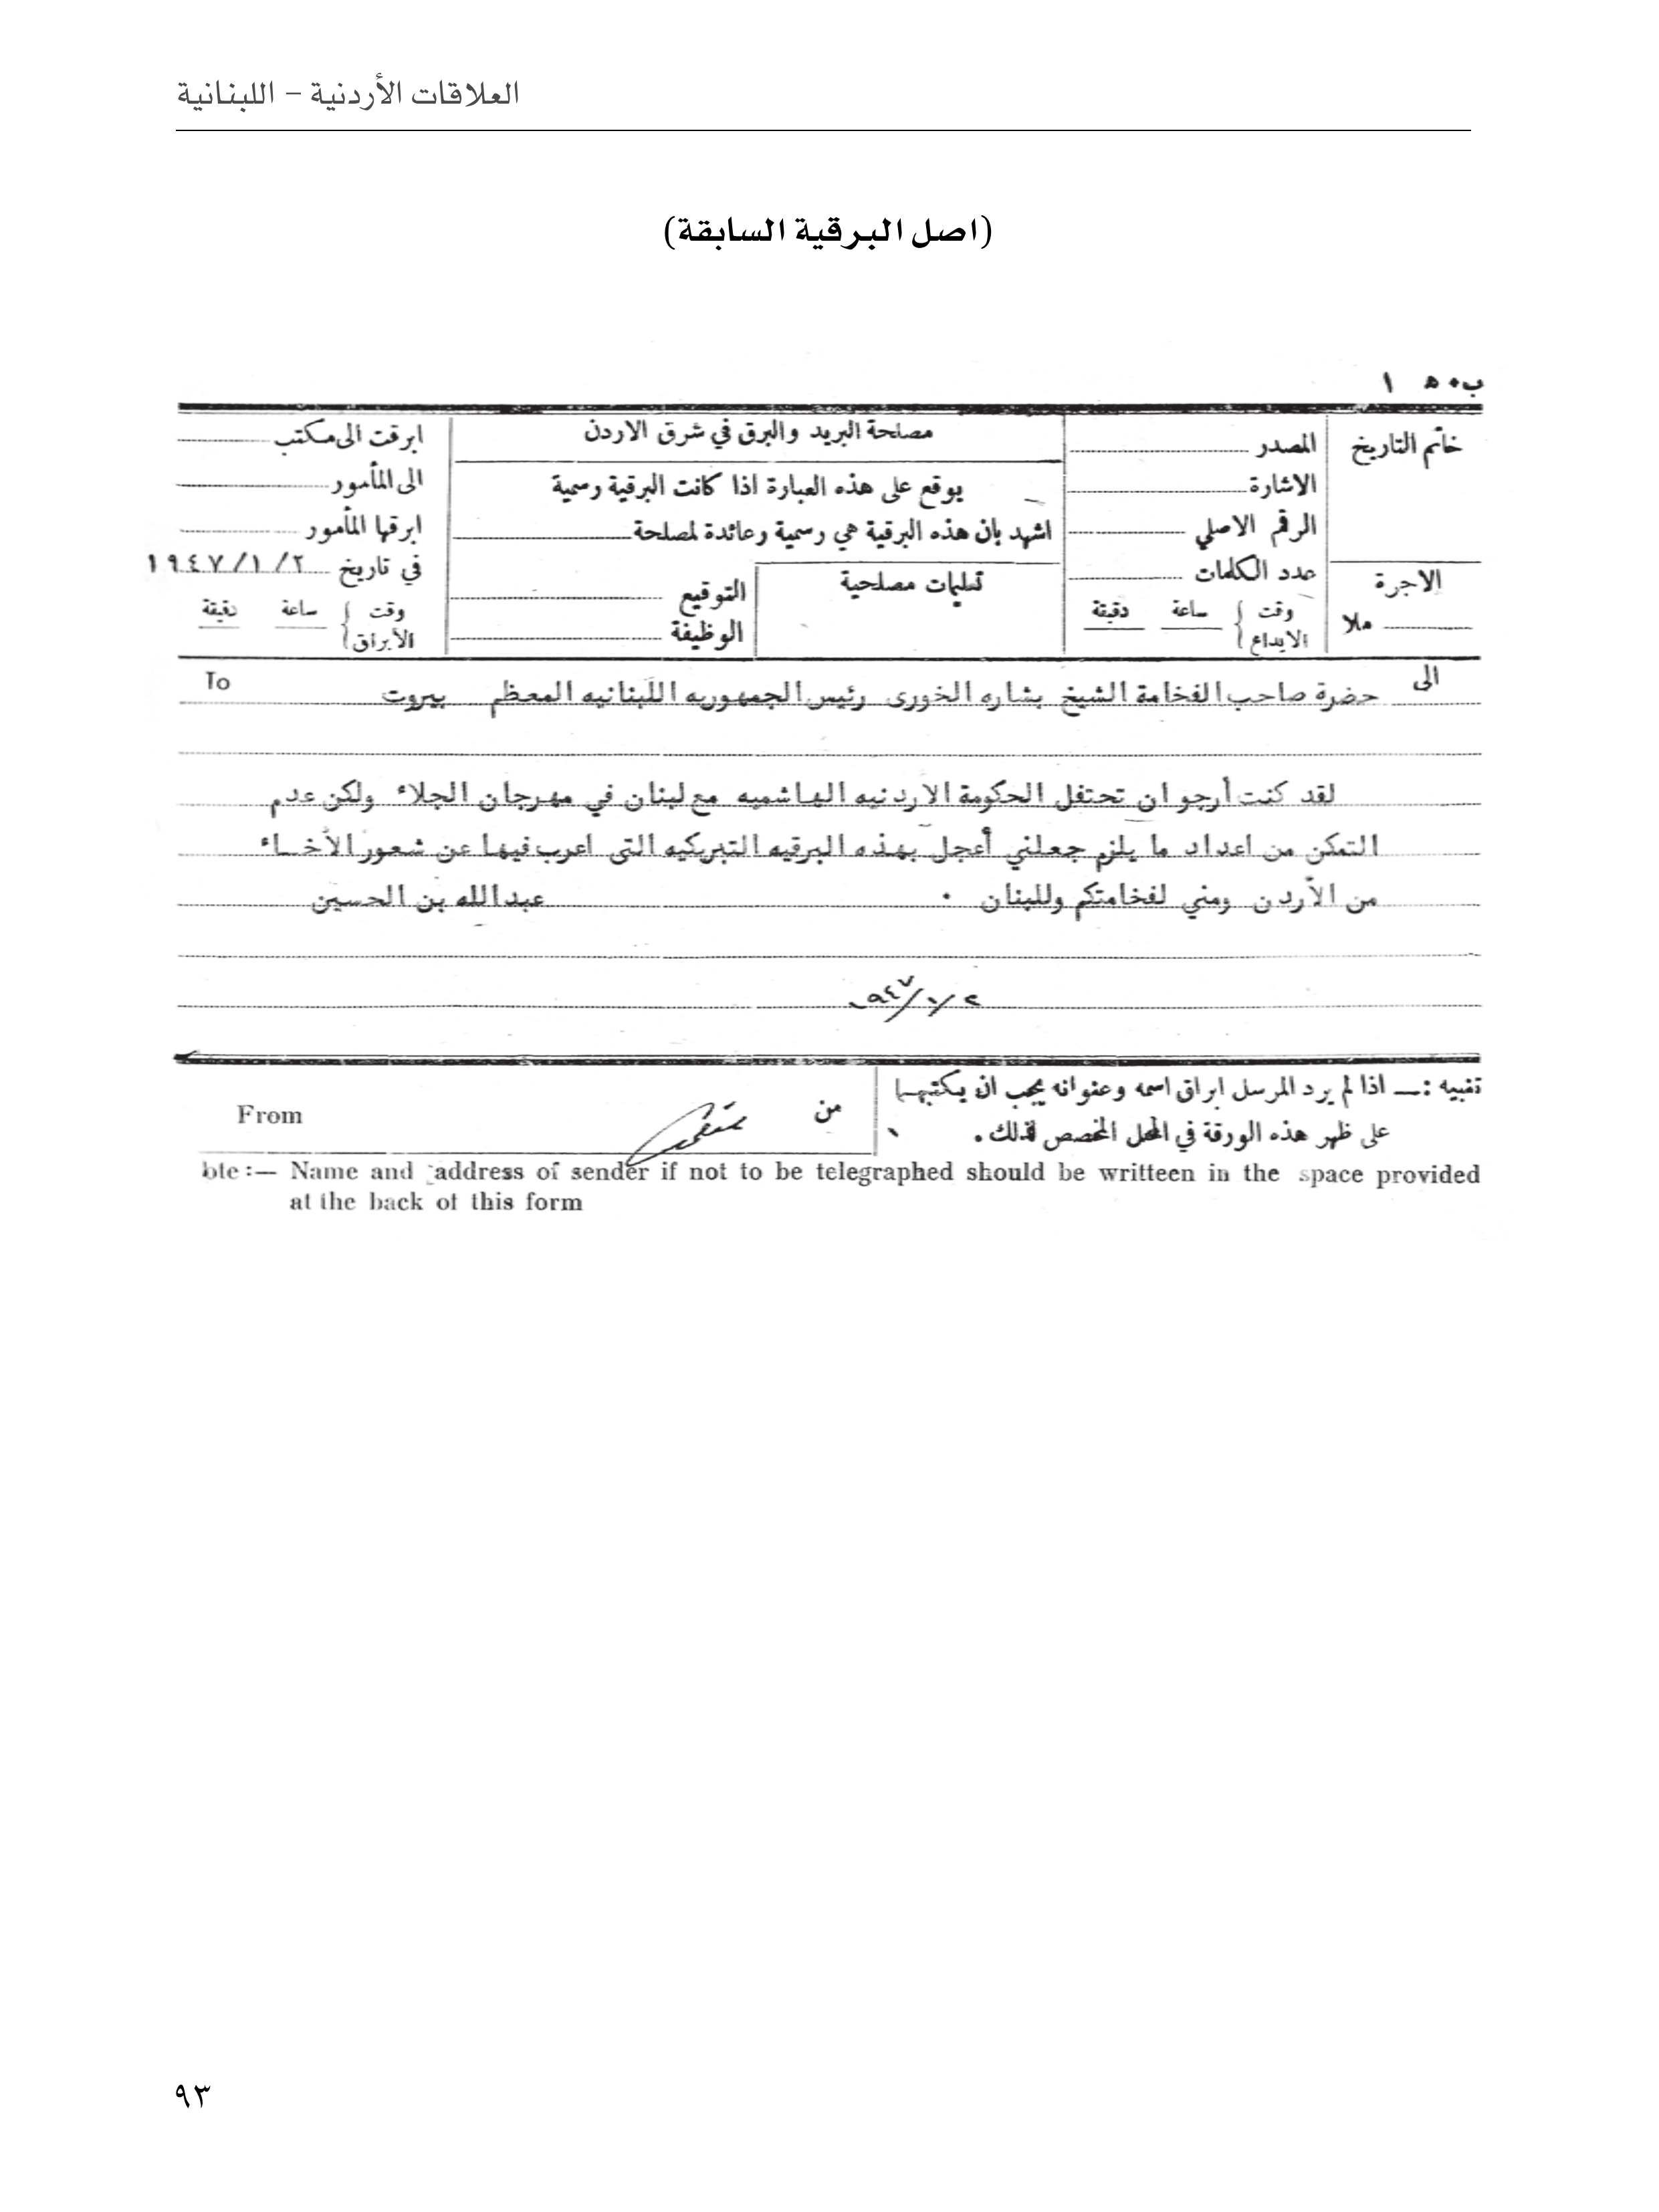 العلاقات الأردنية – اللبنانية
(اصل البرقية السابقة)
ب٥٠ ١
خاتم التاريخ
الاجرة
ملا
المصدر
الاشارة
الرقم الاصلي
عدد الكلمات
وقت الايداع ساعة دقيقة
مصلحة البريد والبرق في شرق الاردن
يوقع على هذه العبارة اذا كانت البرقية رسمية
اشهد بان هذه البرقية هي رسمية وعائدة لمصلحة
تعليمات مصلحية
التوقيع
الوظيفة
ابرقت الى مكتب
الى المأمور
ابرقها المأمور
في تاريخ ١٩٤٧/١/٢
وقت الأبراق ساعة دقيقة
الى حضرة صاحب الفخامة الشيخ بشاره الخورى رئيس الجمهوريه اللبنانيه المعظم بيروت To
لقد كنت أرجو ان تحتفل الحكومة الاردنيه الهاشميه مع لبنان في مهرجان الجلاء ولكن عدم
التمكن من اعداد ما يلزم جعلني أعجل بهذه البرقيه التبريكيه التى اعرب فيها عن شعور الأخاء
من الأردن ومني لفخامتكم وللبنان . عبدالله بن الحسين
١٩٤٧/١/٢
تنبيه :— اذا لم يرد المرسل ابراق اسمه وعنوانه يجب ان يكتبهما
على ظهر هذه الورقة في المحل المخصص لذلك .
من From
ote :— Name and address of sender if not to be telegraphed should be writteen in the space provided
at the back of this form
٩٣